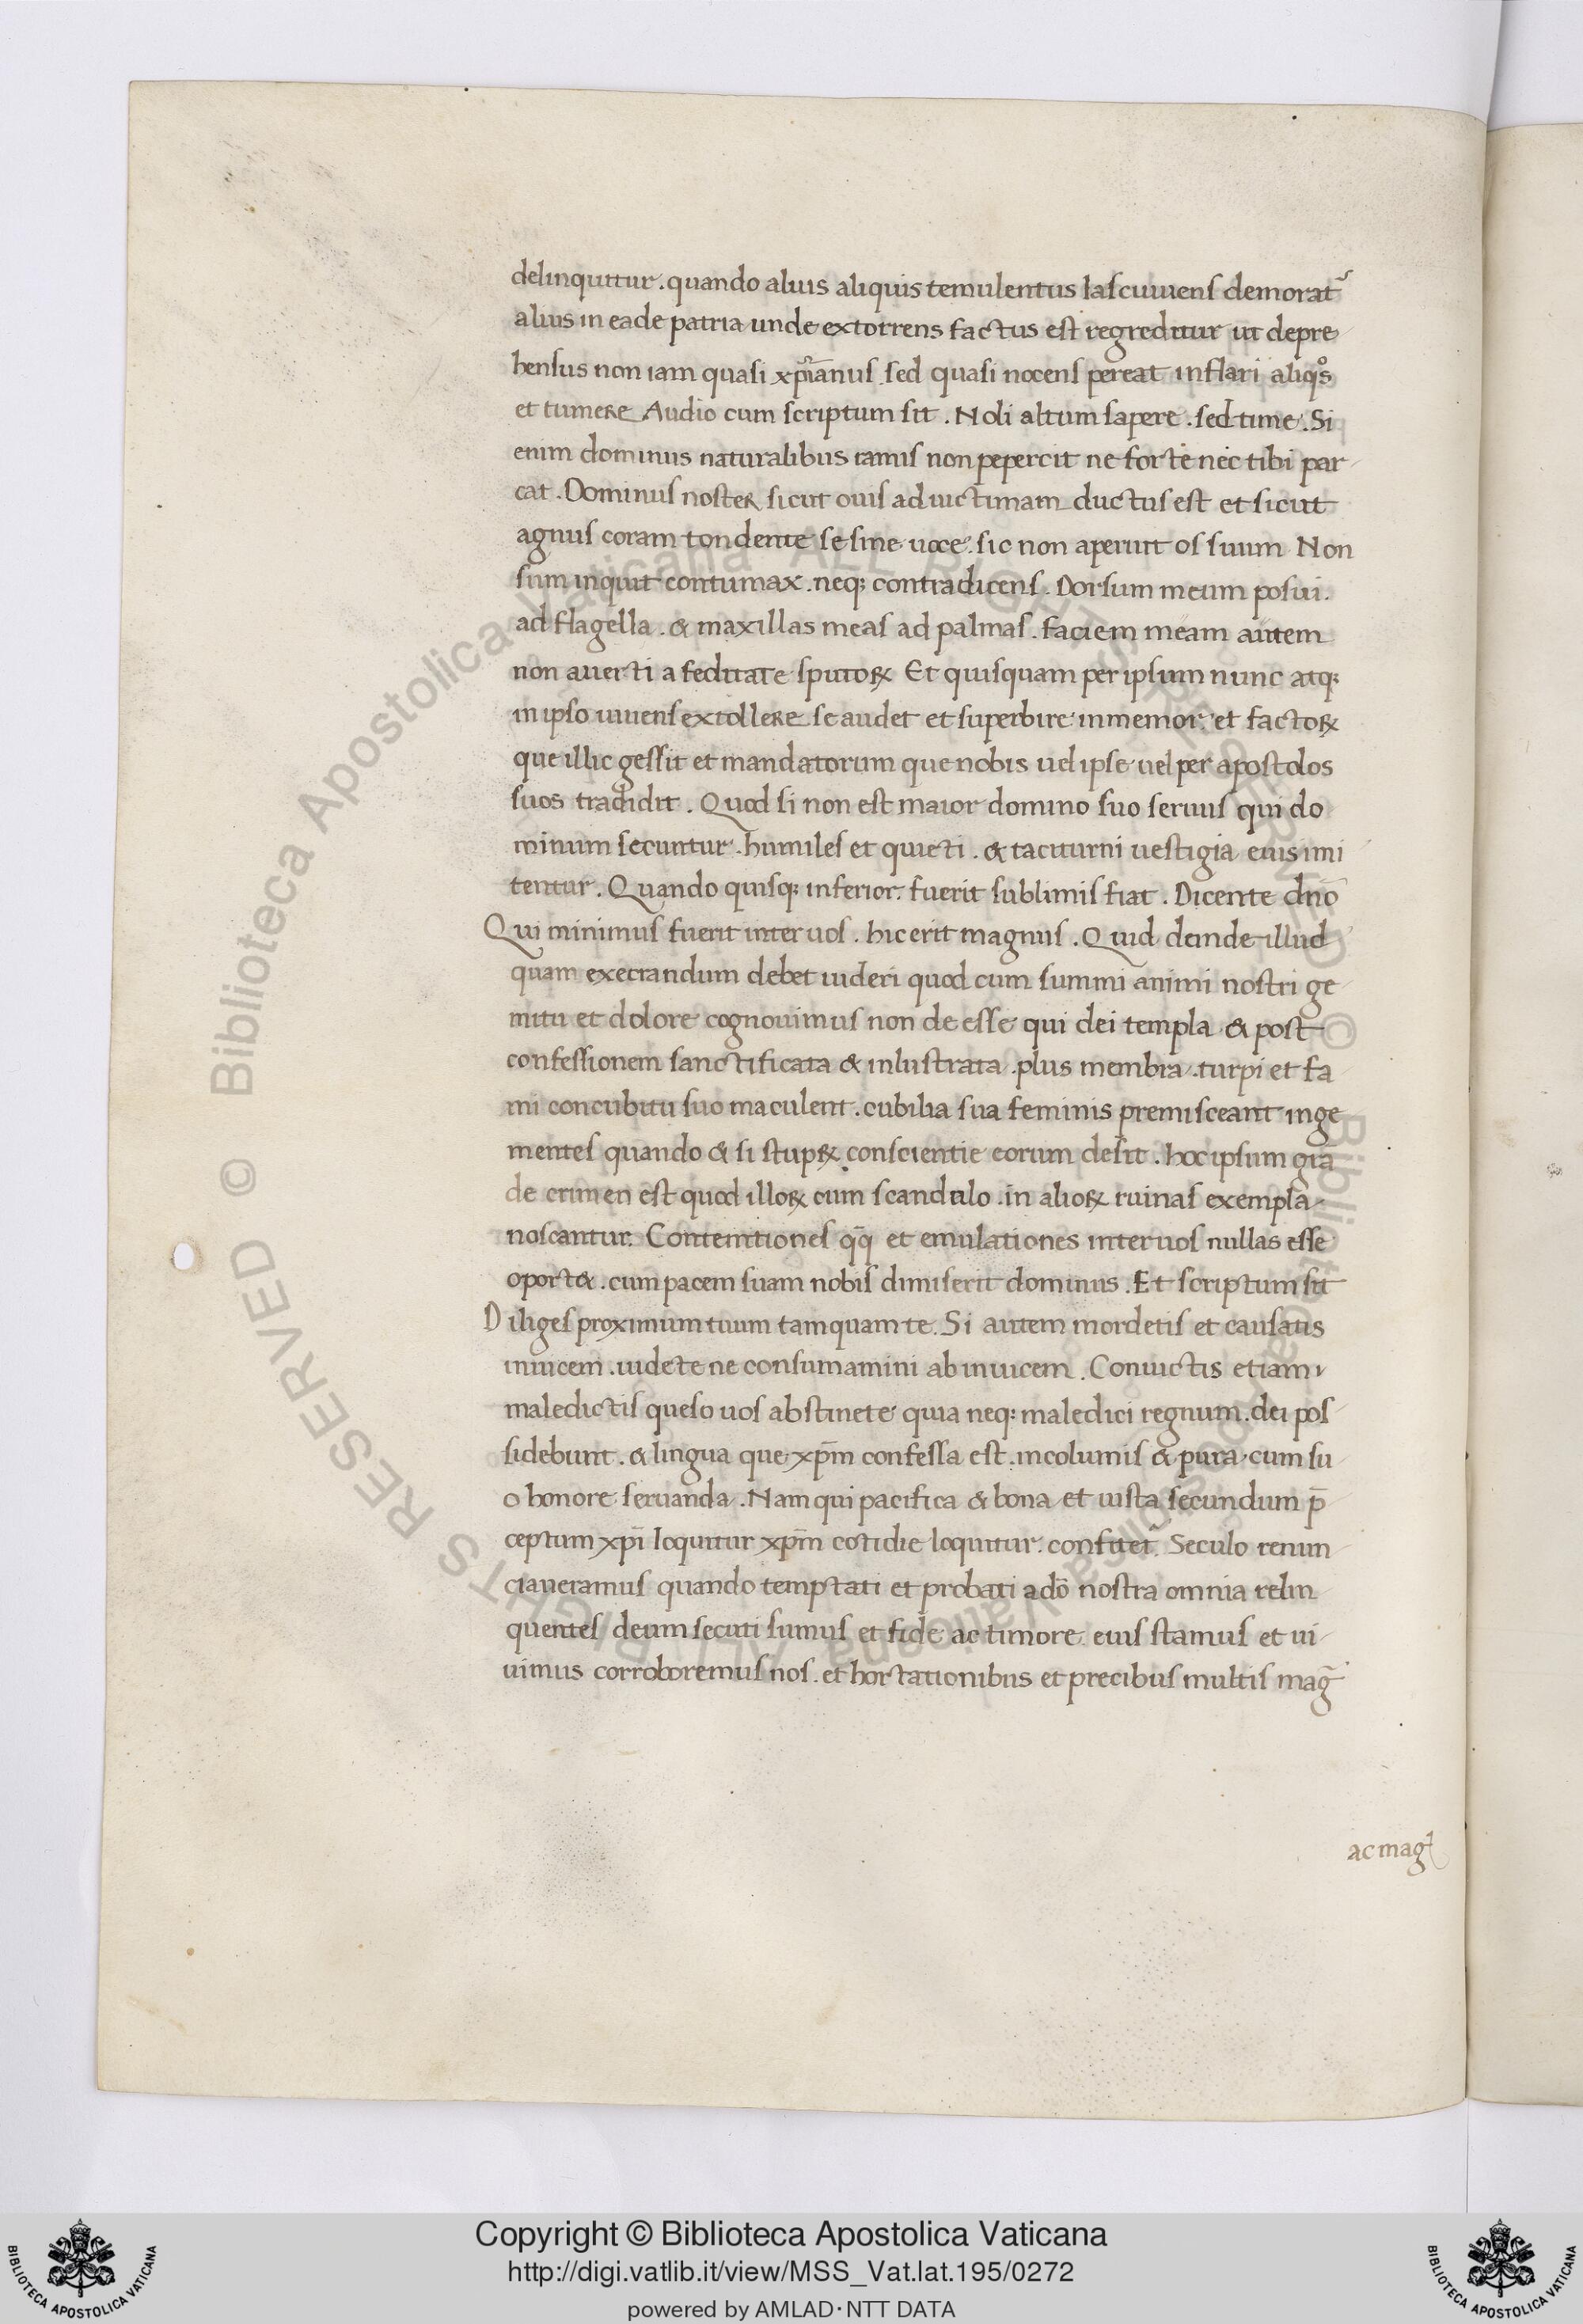 delinquitur . quando aluis aliquis temulentus lasciuiens demorat᷑
alius in eade patria unde extorrens factus est regreditur ut depre
hensus non iam quasi xp̄ianus sed quasi nocens pereat inflari aliqͦs
et tumere Audio cum scriptum sit . Noli altum sapere . sed time . Si
enim dominus naturalibus ramis non pepercit ne forte nec tibi par
cat . Dominus noster sicut ouis ad uictimam ductus est et sicut
agnus coram tondente se sine uoce . sic non aperuit os suum Non
sum inquit contumax . neq; contradicens . Dorsum meum posui .
ad flagella . & maxillas meas ad palmas . faciem meam autem
non auerti a feditate sputoꝝ Et quisquam per ipsum nunc atq;
in ipso uiuens extollere se audet et superbire inmemor . et factoꝝ
que illic gessit et mandatorum que nobis uel ipse uel per apostolos
suos tradidit . Quod si non est maior domino suo seruus qui do
minum secuntur . humiles et quieti . & taciturni uestigia eius imi
tentur . Quando quisq; inferior . fuerit sublimis fiat . Dicente dn̄o
Qui minimus fuerit inter uos . hic erit magnus . Quid deinde illud
quam execrandum debet uideri quod cum summi animi nostri ge
mitu et dolore cognouimus non de esse qui dei templa & post
confessionem sanctificata & inlustrata . plus membra . turpi et fa
mi concubitu suo maculent . cubilia sua feminis premisceant inge
mentes quando & si stupꝝ conscientie eorum desit . hoc ipsum grā
de crimen est quod illoꝝ cum scandulo . in alioꝝ ruinas exempla
noscantur . Contemtiones qq̄ et emulationes inter uos nullas esse
oport& . cum pacem suam nobis dimiserit dominus . Et scriptum sit
Diliges proximum tuum tamquam te . Si autem mordetis et causatis
inuicem . uidete ne consumamini ab inuicem . Conuictis etiam
maledictis queso uos abstinete quia neq; maledici regnum . dei pos
sidebunt . & lingua que xp̄m confessa est . incolumis & pura cum su
o honore seruanda . Nam qui pacifica & bona et iusta secundum p̄
ceptum xp̄i loquitur xp̄m cotidie loquitur . confitet᷑ . Seculo renun
ciaueramus quando temptati et probati a dō nostra omnia relin
quentes deum secuti sumus et fide ac timore eius stamus et ui
uimus corroboremus nos . et hortationibus et precibus multis mag̃
ac mag̃
© Biblioteca Apostolica Vaticana ALL RIGHTS RESERVED © Biblioteca Apostolica Vaticana ALL RIGHTS RESERVED
Copyright © Biblioteca Apostolica Vaticana
http://digi.vatlib.it/view/MSS_Vat.lat.195/0272
powered by AMLAD·NTT DATA
BIBLIOTECA APOSTOLICA VATICANA
BIBLIOTECA APOSTOLICA VATICANA